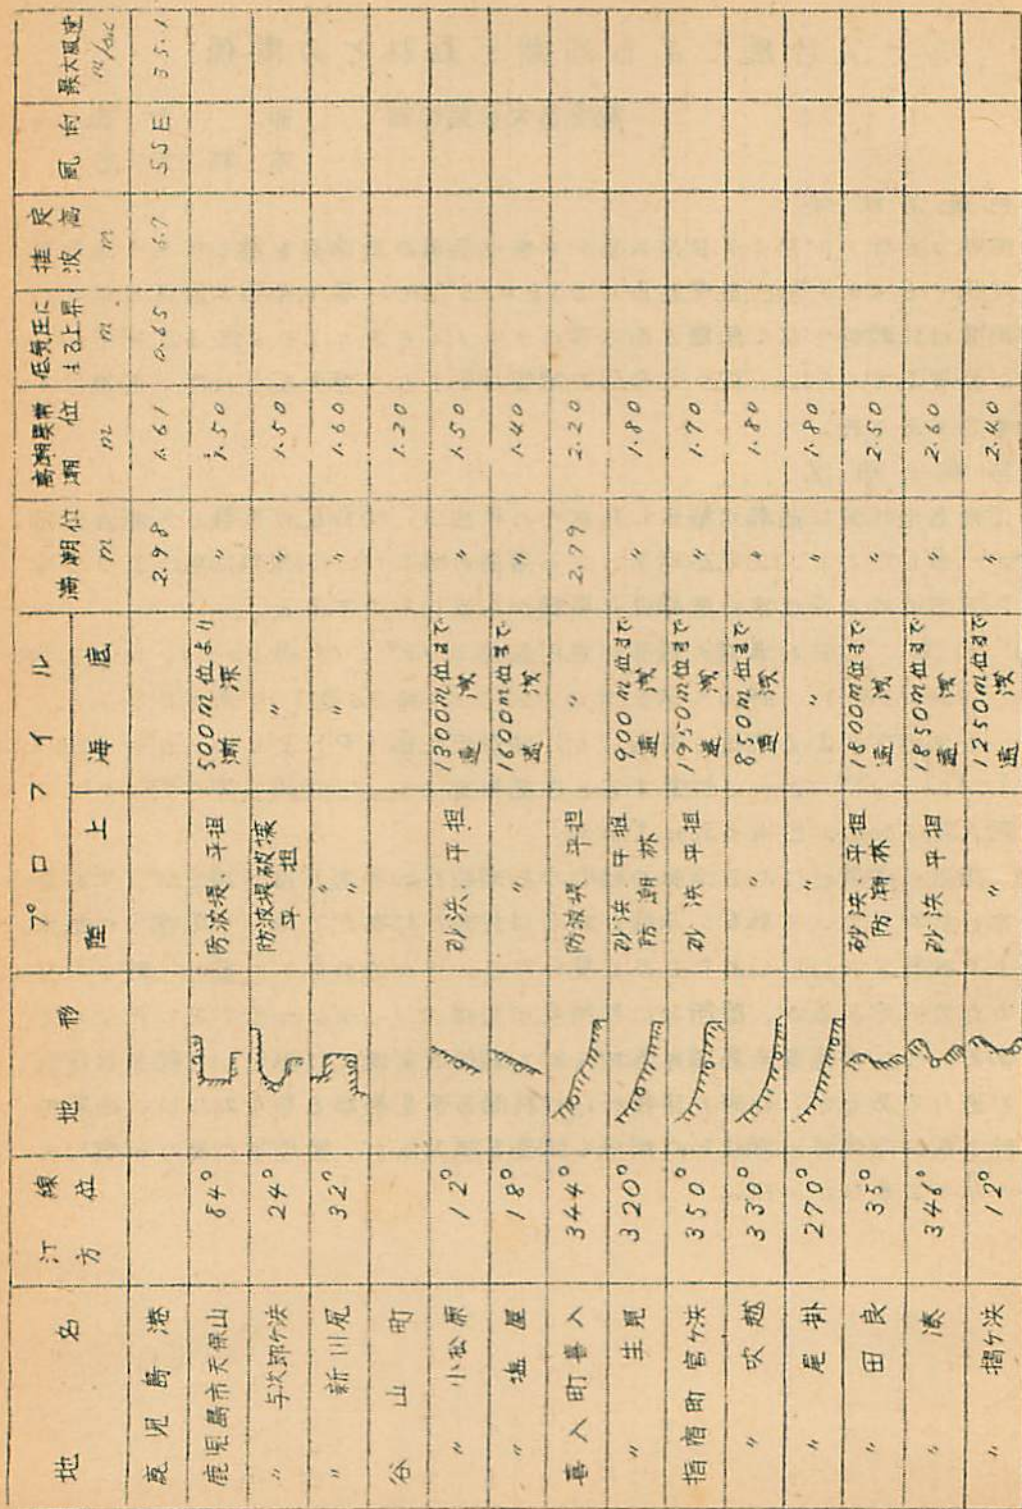 地 名 汀線方位 地 形 プロフイル 陸 上 海 底 満潮位 m 高潮異常潮位 m 低気圧に よる上昇 m 推定波高 m 風 向 最大風速 m/sec
鹿児島港 2.98 1.61 0.65 6.7 SSE 35.1
鹿児島市天保山 84° 防波堤、平担 500m位より漸深 〃 1.50
〃 与次郎ケ浜 24° 防波堤破壊 平担 〃 〃 1.50
〃 新川尻 32° 〃 〃 〃 〃 1.60
谷山町 1.20
〃 小松原 12° 砂浜、平担 1300m位まで遠浅 〃 1.50
〃 塩屋 18° 〃 1600m位まで遠浅 〃 1.40
喜入町喜入 344° 防波堤 平担 〃 2.79 2.20
〃 生見 320° 砂浜、平担 防潮林 900m位まで遠浅 〃 1.80
指宿町 宮ケ浜 350° 砂浜 平担 1950m位まで遠浅 〃 1.70
〃 吹越 330° 〃 850m位まで遠浅 〃 1.80
〃 尾掛 270° 〃 〃 〃 1.80
〃 田良 35° 砂浜、平担 防潮林 1800m位まで遠浅 〃 2.50
〃 湊 346° 砂浜 平担 1850m位まで遠浅 〃 2.60
〃 摺ケ浜 12° 〃 1250m位まで遠浅 〃 2.40